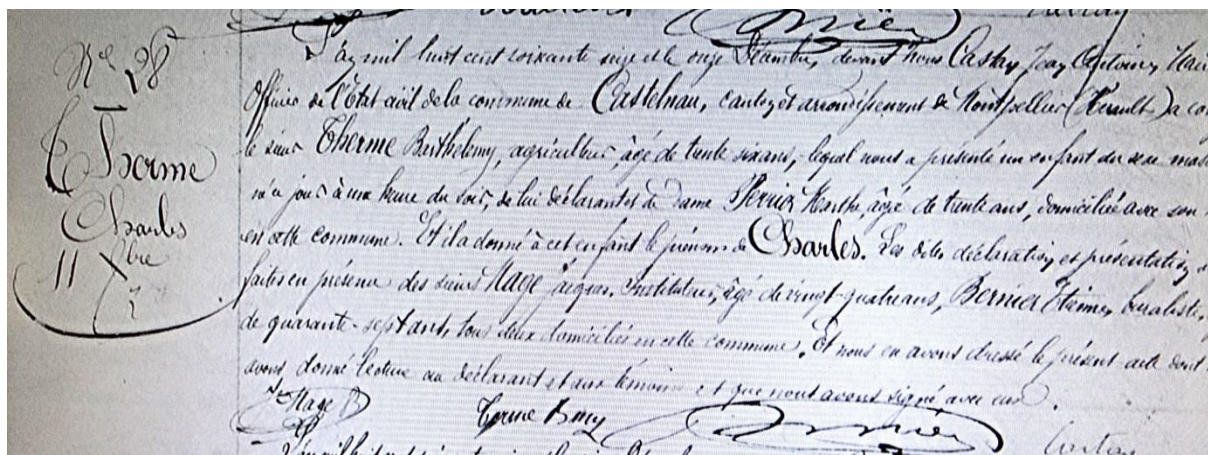 N° 28
Therme
Charles
11 Xbre
L'an mil huit cent soixante seize et le onze Décembre, devant nous Castan Jean Antoine, Mai
Officier de l'Etat civil de la commune de Castelnau, canton et arrondissement de Montpellier (Hérault) a co
le sieur Therme Barthélemy, agriculteur, âgé de trente six ans, lequel nous a présenté un enfant du sexe mas
né ce jour à une heure du soir, de lui déclarant et de dame Perrier Marthe, âgé de trente ans, domiciliée avec son
en cette commune. Et il a donné à cet enfant le prénom de Charles. Les dites déclaration et présentation
faites en présence des sieurs Mage Jacques, Instituteur, âgé de vingt-quatre ans, Bernier Etienne, buraliste,
de quarante-sept ans, tous deux domiciliés en cette commune. Et nous en avons dressé le présent acte dont
avons donné lecture au déclarant et aux témoins et que nous avons signé avec eux.
Mage Terme Bmy
L'an mil huit cent